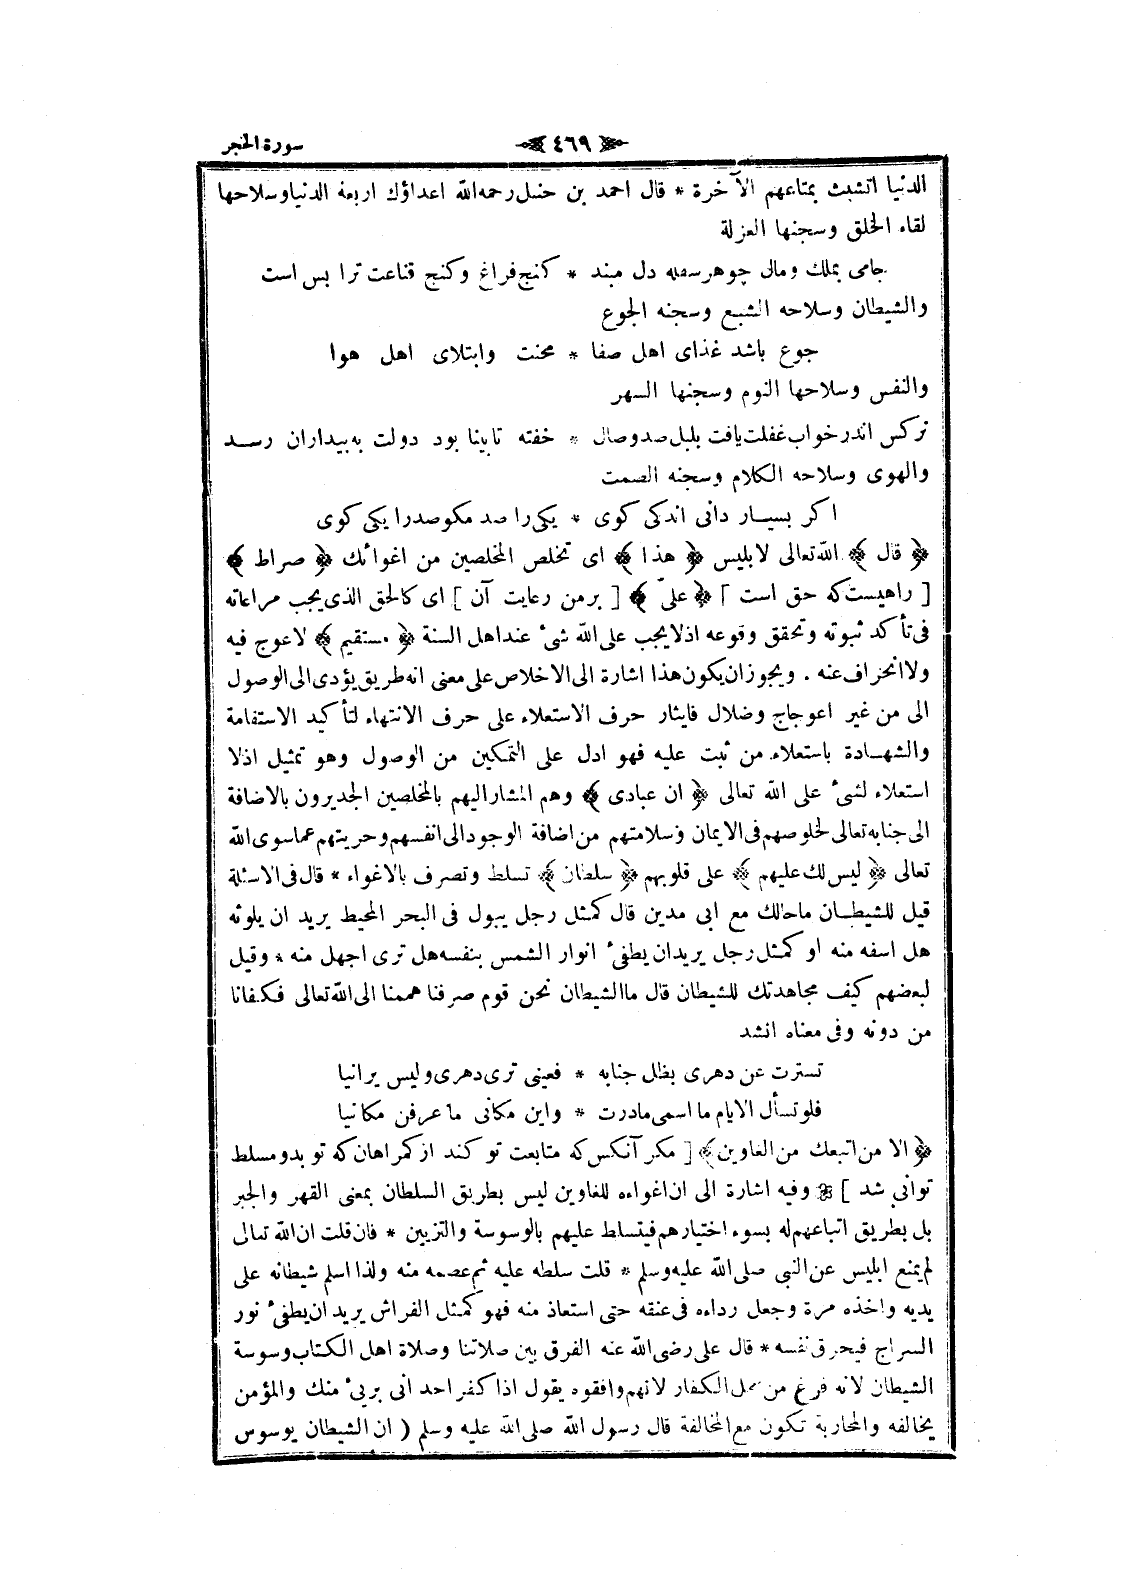 سورة الحجر
٤٦٩
الدنيا اتشبث بمتاعهم الآخرة * قال احمد بن حنبل رحمه الله اعداؤك اربعة الدنيا وسلاحها
لقاء الخلق وسجنها العزلة
جامى بملك ومال چو هر سفله دل مبند * كنج فراغ وكنج قناعت ترا بس است
والشيطان وسلاحه الشبع وسجنه الجوع
جوع باشد غذاى اهل صفا * محنت وابتلاى اهل هوا
والنفس وسلاحها النوم وسجنها السهر
نركس اندر خواب غفلت يافت بلبل صد وصال * خفته نابينا بود دولت به بيداران رسد
والهوى وسلاحه الكلام وسجنه الصمت
اكر بسيار دانى اندكى كوى * يكى را صد مكو صد را يكى كوى
﴿ قال ﴾ الله تعالى لابليس ﴿ هذا ﴾ اى تخلص المخلصين من اغوائك ﴿ صراط ﴾
[ راهيست كه حق است ] ﴿ علىّ ﴾ [ بر من رعايت آن ] اى كالحق الذى يجب مراعاته
فى تأكد ثبوته وتحقق وقوعه اذ لا يجب على الله شىء عند اهل السنة ﴿ مستقيم ﴾ لاعوج فيه
ولا انحراف عنه . ويجوز ان يكون هذا اشارة الى الاخلاص على معنى انه طريق يؤدى الى الوصول
الى من غير اعوجاج وضلال فايثار حرف الاستعلاء على حرف الانتهاء لتأكيد الاستقامة
والشهادة باستعلاء من ثبت عليه فهو ادل على التمكين من الوصول وهو تمثيل اذلا
استعلاء لشىء على الله تعالى ﴿ ان عبادى ﴾ وهم المشار اليهم بالمخلصين الجديرون بالاضافة
الى جنابه تعالى لخلوصهم فى الايمان وسلامتهم من اضافة الوجود الى انفسهم وحريتهم عما سوى الله
تعالى ﴿ ليس لك عليهم ﴾ على قلوبهم ﴿ سلطان ﴾ تسلط وتصرف بالاغواء * قال فى الاسئلة
قيل للشيطان ما حالك مع ابى مدين قال كمثل رجل يبول فى البحر المحيط يريد ان يلوثه
هل اسفه منه او كمثل رجل يريد ان يطفئ انوار الشمس بنفسه هل ترى اجهل منه * وقيل
لبعضهم كيف مجاهدتك للشيطان قال ما الشيطان نحن قوم صرفنا هممنا الى الله تعالى فكفانا
من دونه وفى معناه انشد
تسترت عن دهرى بظل جنابه * فعينى ترى دهرى وليس يرانيا
فلو تسأل الايام ما اسمى ما درت * واين مكانى ما عرفن مكانيا
﴿ الا من اتبعك من الغاوين ﴾ [ مكر آنكس كه متابعت تو كند از كمراهان كه تو بدو مسلط
توانى شد ] وفيه اشارة الى ان اغواءه للغاوين ليس بطريق السلطان بمعنى القهر والجبر
بل بطريق اتباعهم له بسوء اختيارهم فيتسلط عليهم بالوسوسة والتزيين * فان قلت ان الله تعالى
لم يمنع ابليس عن النبى صلى الله عليه وسلم * قلت سلطه عليه ثم عصمه منه ولذا اسلم شيطانه على
يديه واخذه مرة وجعل رداءه فى عنقه حتى استعاذ منه فهو كمثل الفراش يريد ان يطفئ نور
السراج فيحرق نفسه * قال على رضى الله عنه الفرق بين صلاتنا وصلاة اهل الكتاب وسوسة
الشيطان لانه فرغ من عمل الكفار لانهم وافقوه يقول اذا كفر احد انى برىء منك والمؤمن
يخالفه والمحاربة تكون مع المخالفة قال رسول الله صلى الله عليه وسلم ( ان الشيطان يوسوس